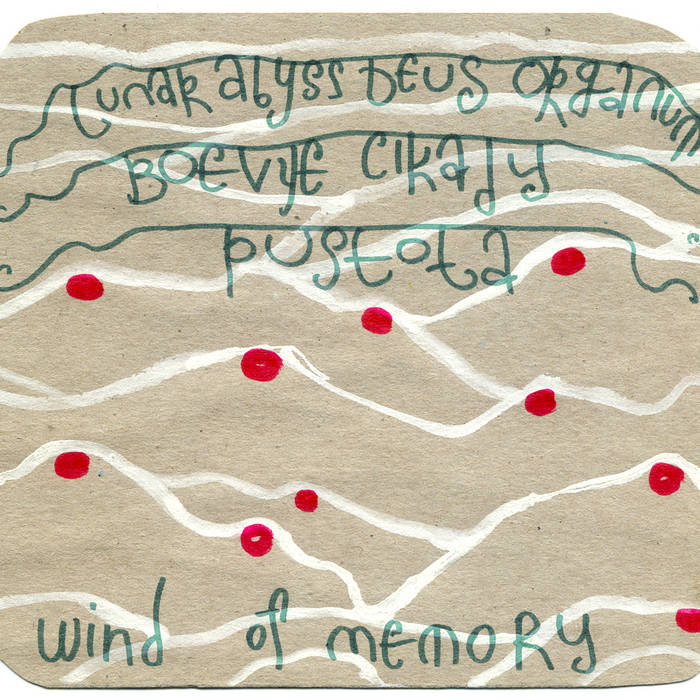 Lunar Abyss Deus Organum
BOEVYE CIKADY
PUSTOTA
wind of memory